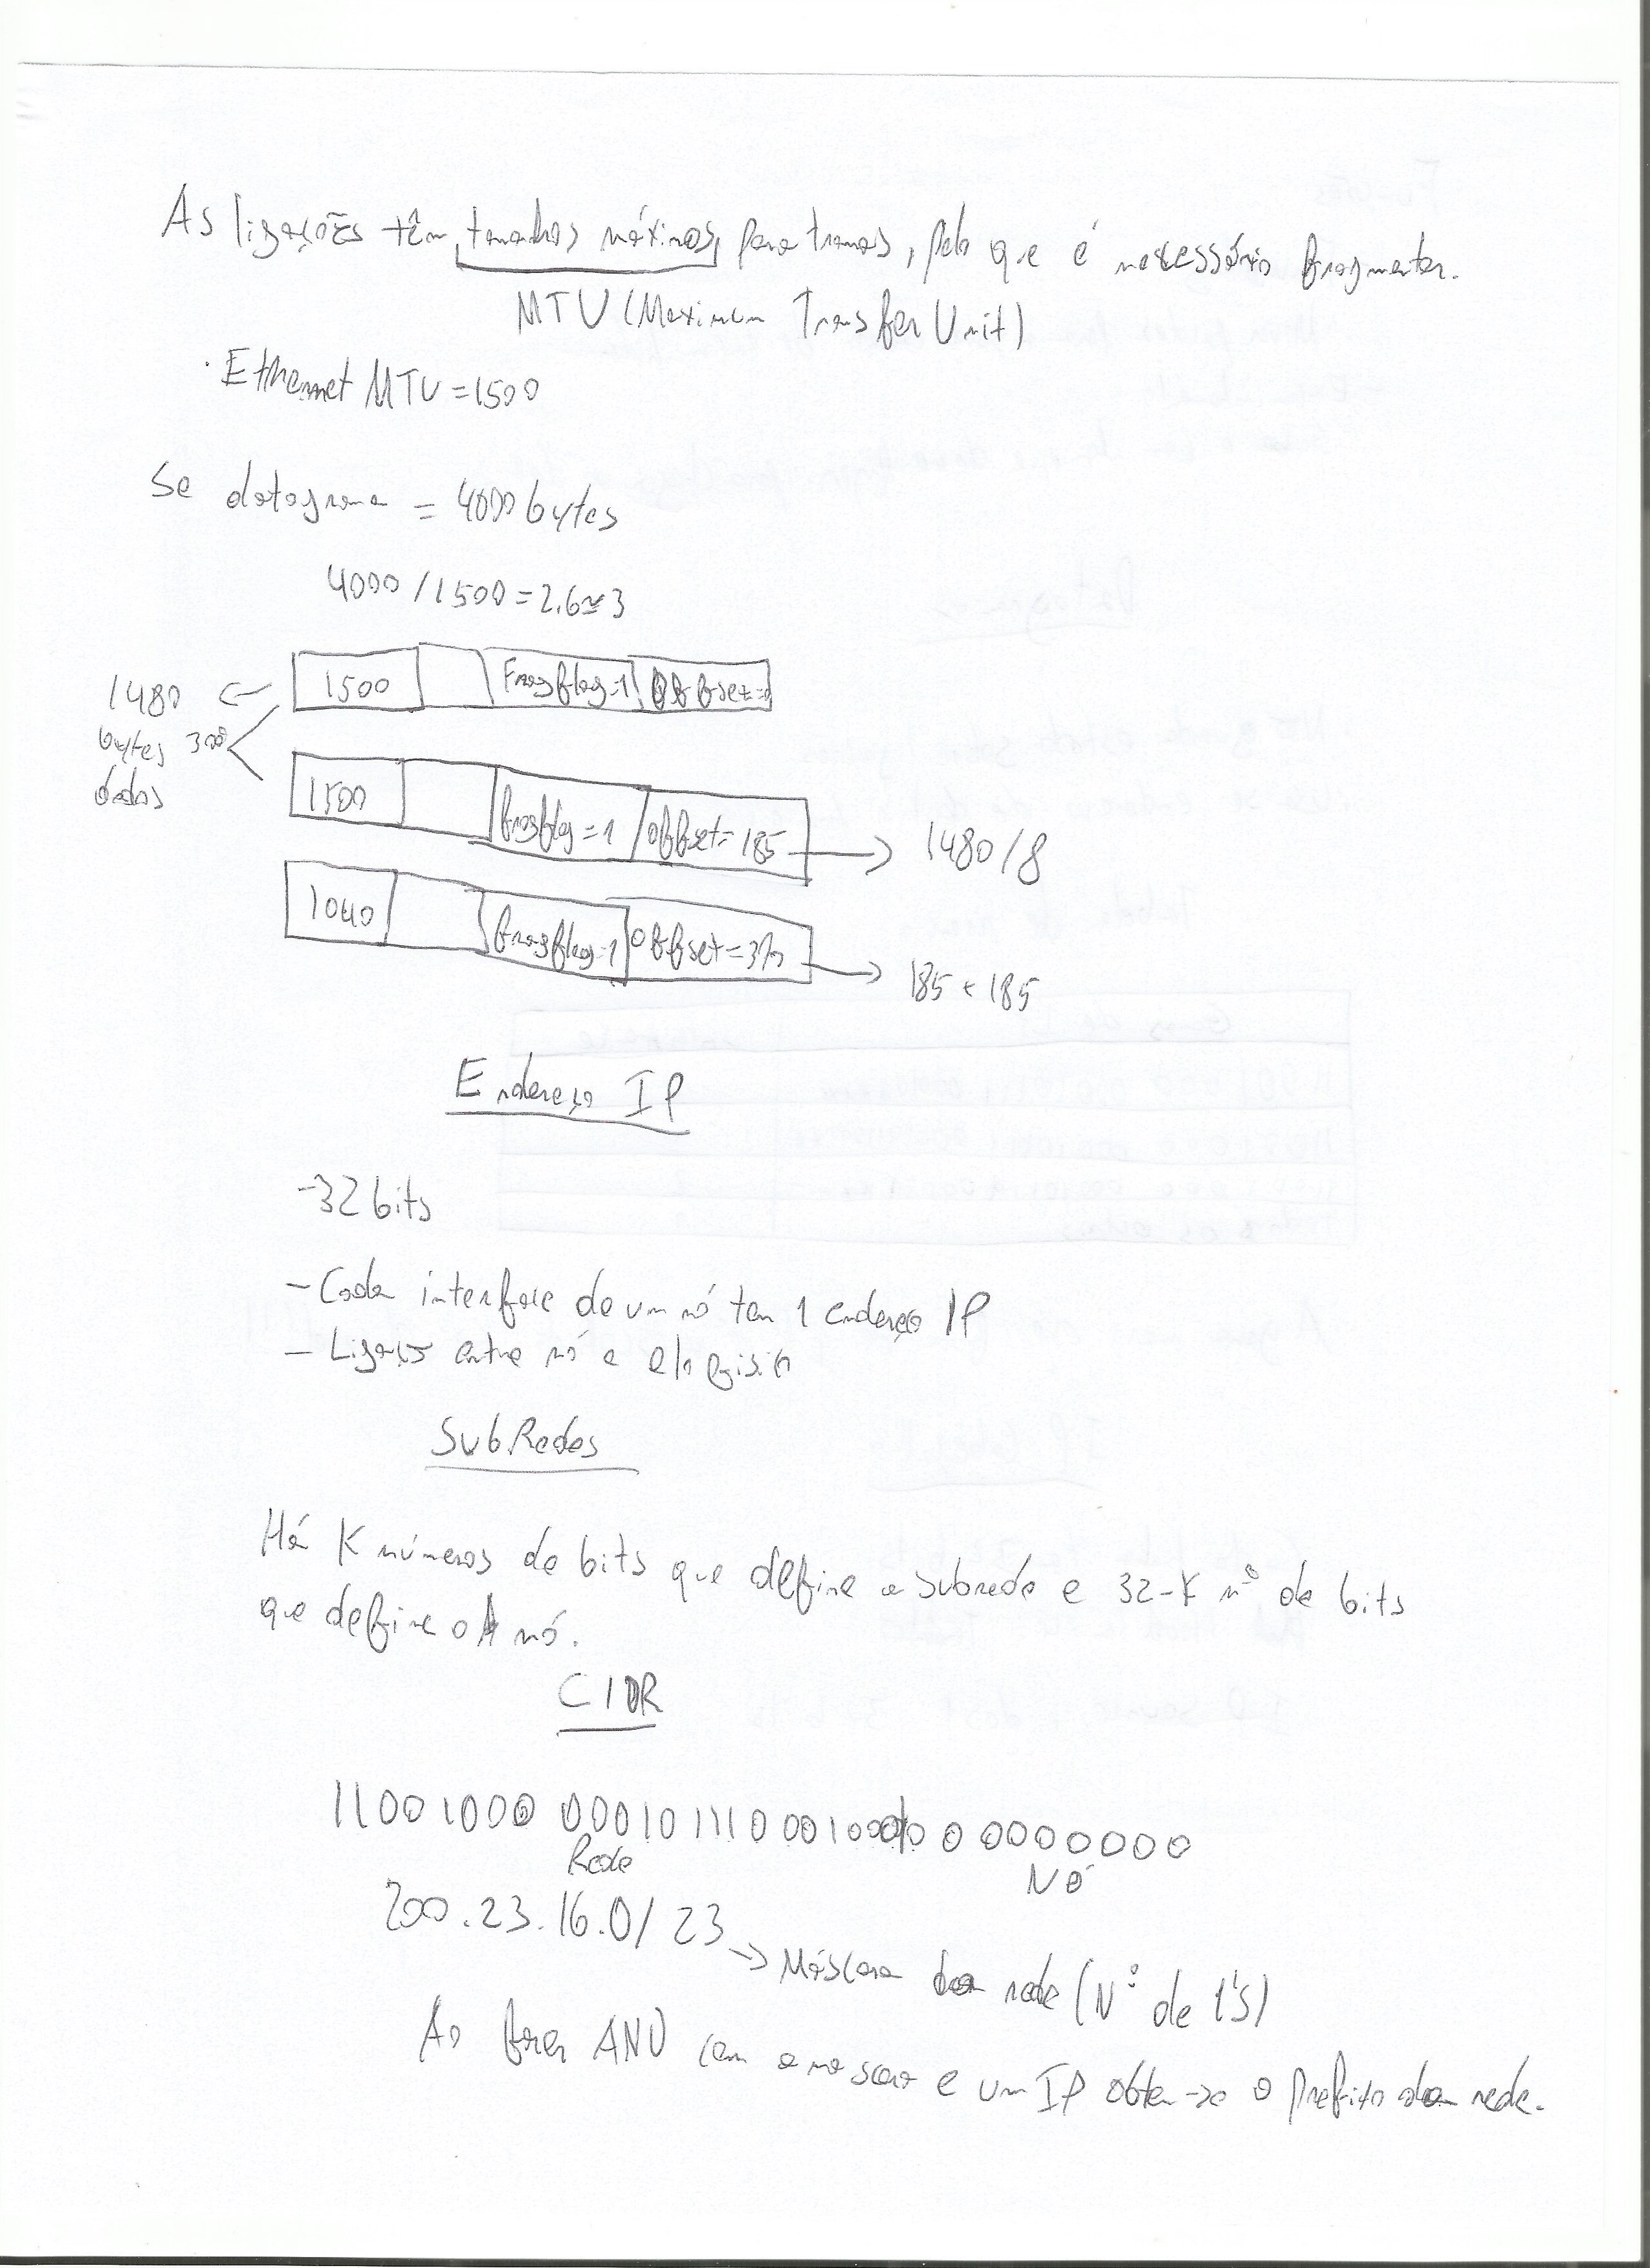 As ligações têm tamanhos máximos para tramas, pelo que é necessário fragmentar.
MTU (Maximum Transfer Unit)
· Ethernet MTU = 1500
Se datagrama = 4000 bytes
4000 / 1500 = 2,6 ≈ 3
1480 bytes dados
1500 Fragflag=1 Offset=0
1500 fragflag=1 Offset=185 → 1480/8
1040 fragflag=1 Offset=370 → 185 + 185
Endereço IP
- 32 bits
- Cada interface de um nó tem 1 endereço IP
- Ligação entre nó e
SubRedes
Há K números de bits que define a subrede e 32-K nº de bits
que define o nó.
CIDR
11001000 00010111 00010000 00000000
Rede Nó
200.23.16.0/23 → Máscara da rede (Nº de 1's)
Ao fazer AND com a mascara e um IP obtem-se o prefixo da rede.